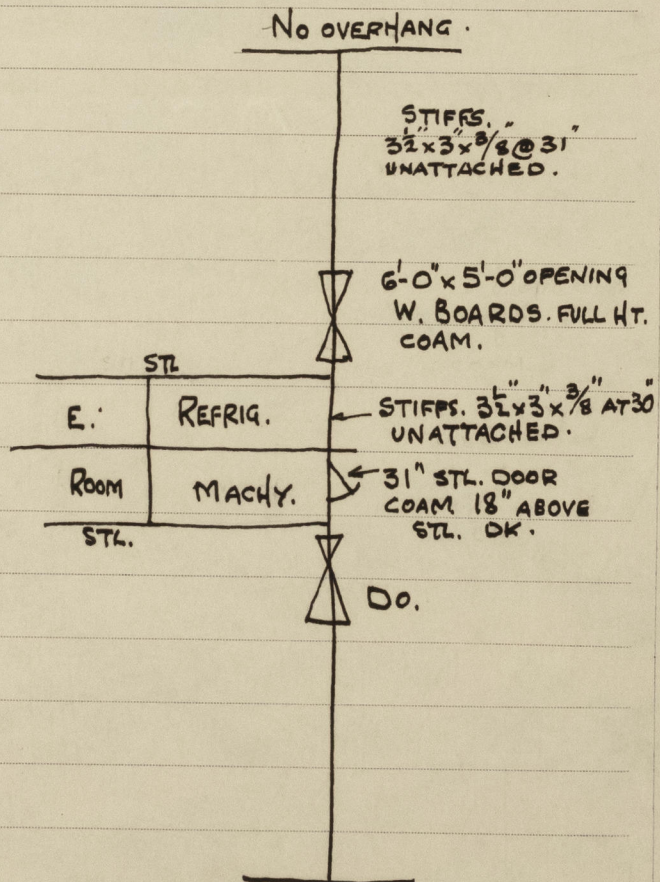 No OVERHANG.
STIFFS.
3½"x3"x3/8"@31"
UNATTACHED.
6'-0"x5'-0" OPENING
W. BOARDS. FULL HT.
COAM.
STL
E.
REFRIG.
STIFFS. 3½"x3"x3/8" AT 30"
UNATTACHED.
ROOM
MACHY.
31" STL. DOOR
COAM 18" ABOVE
STL. DK.
STL.
Do.